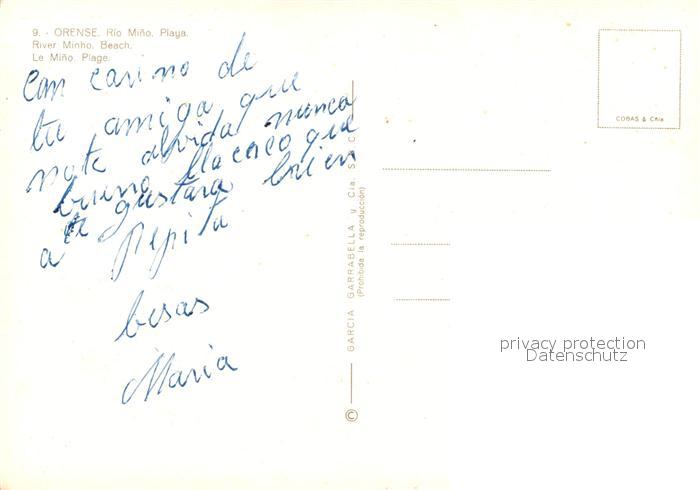 9. - ORENSE. Río Miño. Playa.
River Minho. Beach.
Le Miño. Plage.
Con carino de
tu amiga que
no te olvida nunca
bueno llo creo que
te gustara bien
a Pepita
besos
Maria
GARCIA GARRABELLA y Cia. S. C.
(Prohibida la reproducción)
©
COBAS & Cía
privacy protection
Datenschutz